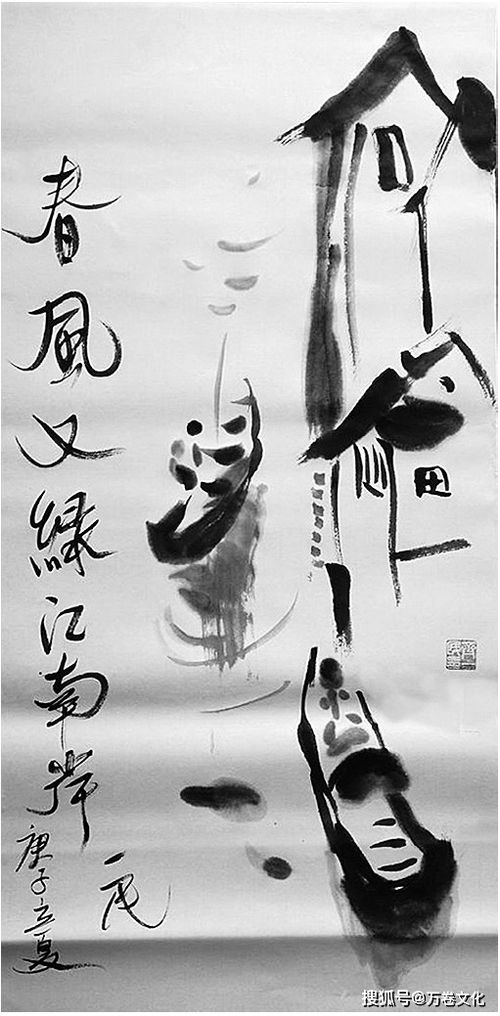 春風又緑江南岸
庚子立夏
搜狐号@万卷文化